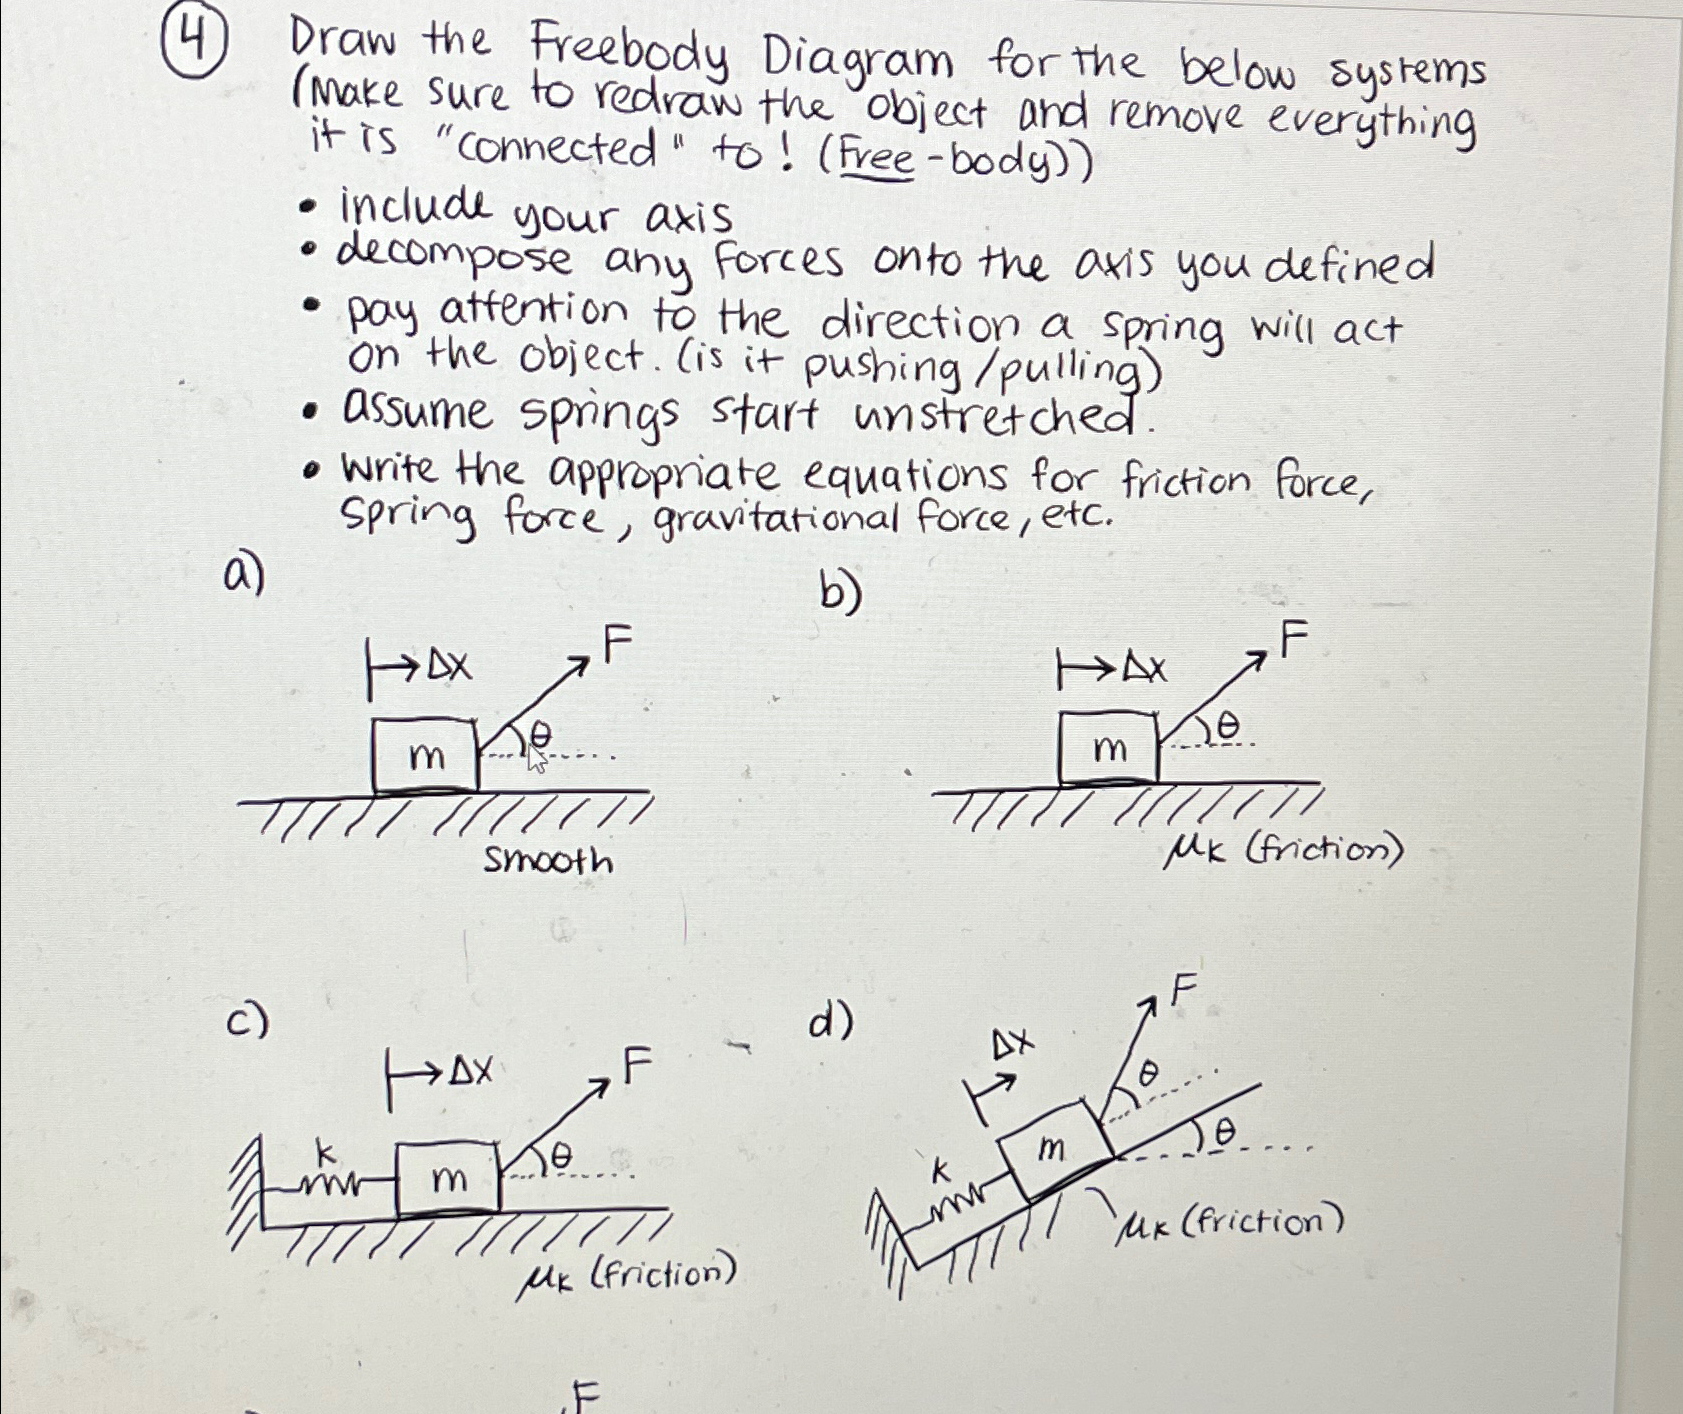 4 Draw the Freebody Diagram for the below systems
(Make sure to redraw the object and remove everything
it is "connected" to! (Free-body))
• include your axis
• decompose any forces onto the axis you defined
• pay attention to the direction a spring will act
on the object. (is it pushing/pulling)
• assume springs start unstretched.
• write the appropriate equations for friction force,
spring force, gravitational force, etc.
a)
b)
Δx
F
θ
m
smooth
Δx
F
θ
m
μk (friction)
c)
d)
Δx
F
k
m
θ
μk (friction)
F
Δx
θ
m
θ
k
μk (friction)
F